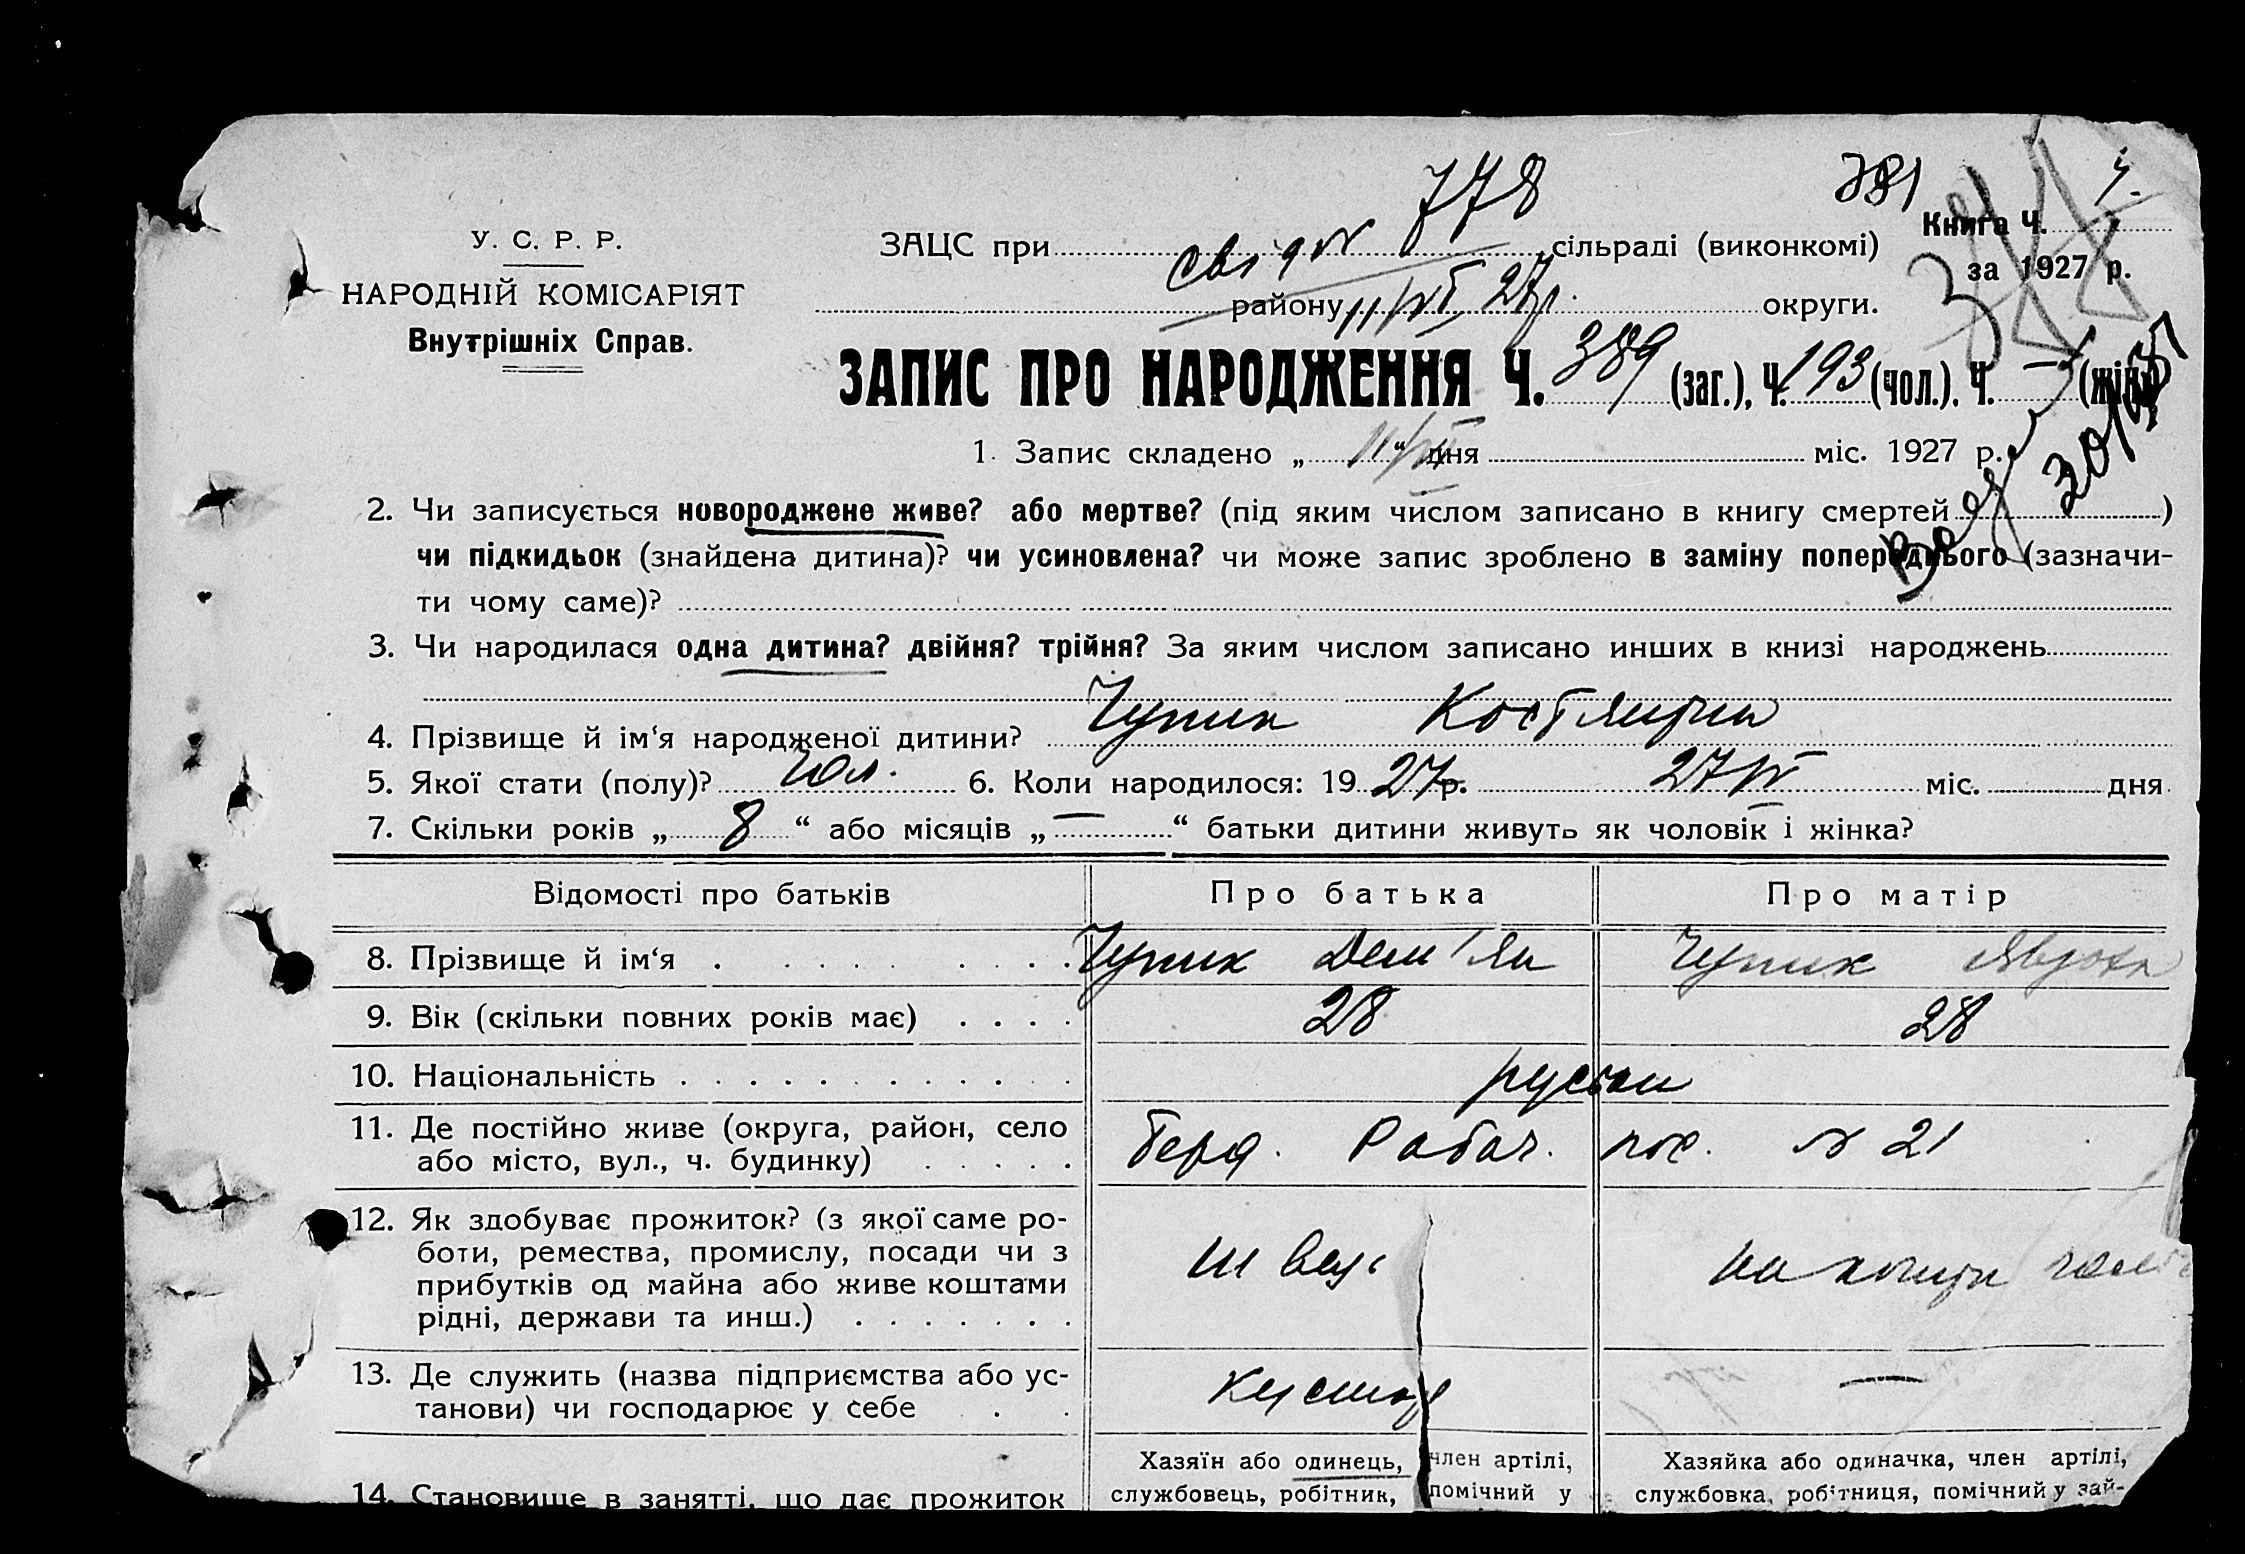 778
381
4.
У. С. Р. Р.
ЗАЦС при сільраді (виконкомі)
Книга Ч.
за 1927 р.
НАРОДНІЙ КОМІСАРІЯТ
району 11/VI 27р. округи.
Внутрішніх Справ.
ЗАПИС ПРО НАРОДЖЕННЯ Ч. 389 (заг.), Ч. 193 (чол.), Ч. — (жін.)
1. Запис складено „ 11/VI “ дня міс. 1927 р.
2. Чи записується новороджене живе? або мертве? (під яким числом записано в книгу смертей )
чи підкидьок (знайдена дитина)? чи усиновлена? чи може запис зроблено в заміну попереднього (зазначи-
ти чому саме)?
3. Чи народилася одна дитина? двійня? трійня? За яким числом записано инших в книзі народжень
4. Прізвище й ім‘я народженої дитини? Чупик
5. Якої стати (полу)? чол. 6. Коли народилося: 19 27 р. 27/VI міс. дня
7. Скільки років „ 8 “ або місяців „ — “ батьки дитини живуть як чоловік і жінка?
Відомості про батьків Про батька Про матір
8. Прізвище й ім‘я Чупик Дем'ян Чупик Явдоха
9. Вік (скільки повних років має) 28 28
10. Національність
11. Де постійно живе (округа, район, село
або місто, вул., ч. будинку) Берд. Рабоч. пос. № 21
12. Як здобуває прожиток? (з якої саме ро-
боти, ремества, промислу, посади чи з
прибутків од майна або живе коштами
рідні, держави та инш.) швец
13. Де служить (назва підприємства або ус-
танови) чи господарює у себе кустар —
Хазяїн або одинець, член артілі, Хазяйка або одиначка, член артілі,
14. Становище в занятті, що дає прожиток службовець, робітник, помічний у службовка, робітниця, помічний у зай-